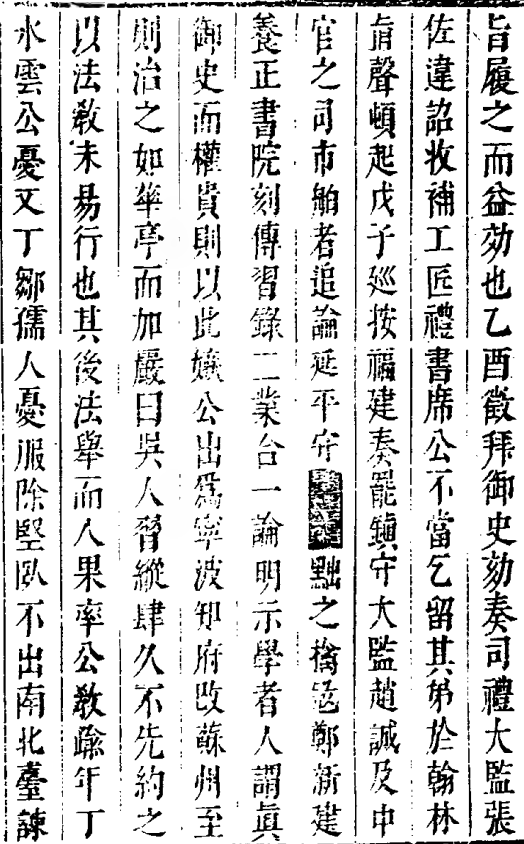 旨履之而益効也乙酉徵拜御史劾奏司禮大監張
佐違詔收補工匠禮書席公不當乞留其弟於翰林
肯聲頓起戊子廵按福建奏罷鎮守大監趙誠及中
官之司市舶者追論延平守黜之擒冦鄭新建
養正書院刻傳習錄二業合一論明示學者人謂眞
御史而權貴則以此嫉公出爲寧波知府改蘇州至
則治之如華亭而加嚴曰吳人習縱肆久不先約之
以法敎未易行也其後法舉而人果率公敎踰年丁
水雲公憂又丁鄒孺人憂服除堅臥不出南北臺諫